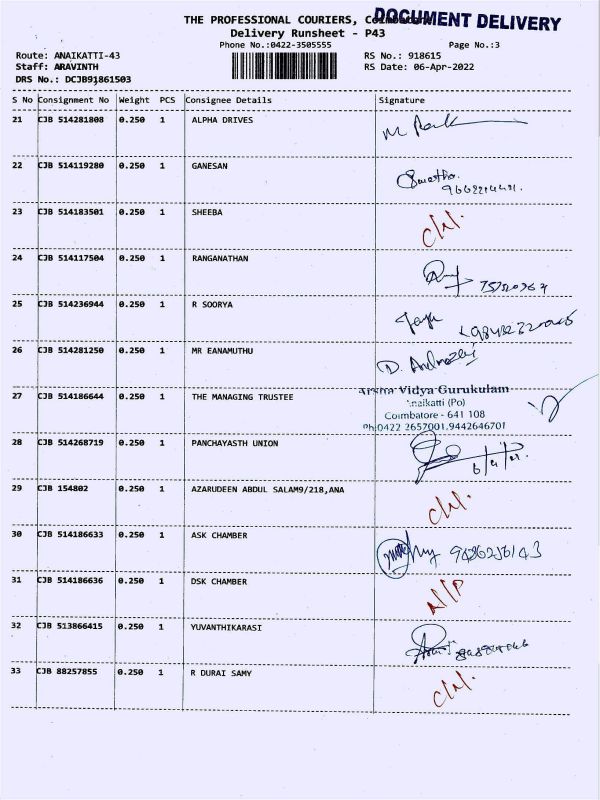 THE PROFESSIONAL COURIERS, Coimbatore
DOCUMENT DELIVERY
Delivery Runsheet - P43
Phone No.:0422-3505555
Page No.:3
Route: ANAIKATTI-43
RS No.: 918615
Staff: ARAVINTH
RS Date: 06-Apr-2022
DRS No.: DCJB91861503
S No Consignment No Weight PCS Consignee Details Signature
21 CJB 514281808 0.250 1 ALPHA DRIVES
22 CJB 514119280 0.250 1 GANESAN
23 CJB 514183501 0.250 1 SHEEBA
24 CJB 514117504 0.250 1 RANGANATHAN
25 CJB 514236944 0.250 1 R SOORYA
26 CJB 514281250 0.250 1 MR EANAMUTHU
27 CJB 514186644 0.250 1 THE MANAGING TRUSTEE
Arsha Vidya Gurukulam
Anaikatti (Po)
Coimbatore - 641 108
Ph:0422 2657001,9442646701
28 CJB 514268719 0.250 1 PANCHAYASTH UNION
29 CJB 154802 0.250 1 AZARUDEEN ABDUL SALAM9/218,ANA
30 CJB 514186633 0.250 1 ASK CHAMBER
31 CJB 514186636 0.250 1 DSK CHAMBER N/P
32 CJB 513866415 0.250 1 YUVANTHIKARASI
33 CJB 88257855 0.250 1 R DURAI SAMY